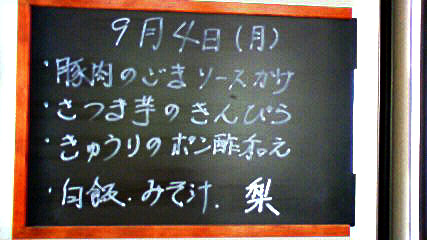 9月4日(月)
・豚肉のごまソースかけ
・さつま芋のきんぴら
・きゅうりのポン酢和え
・白飯.みそ汁.梨